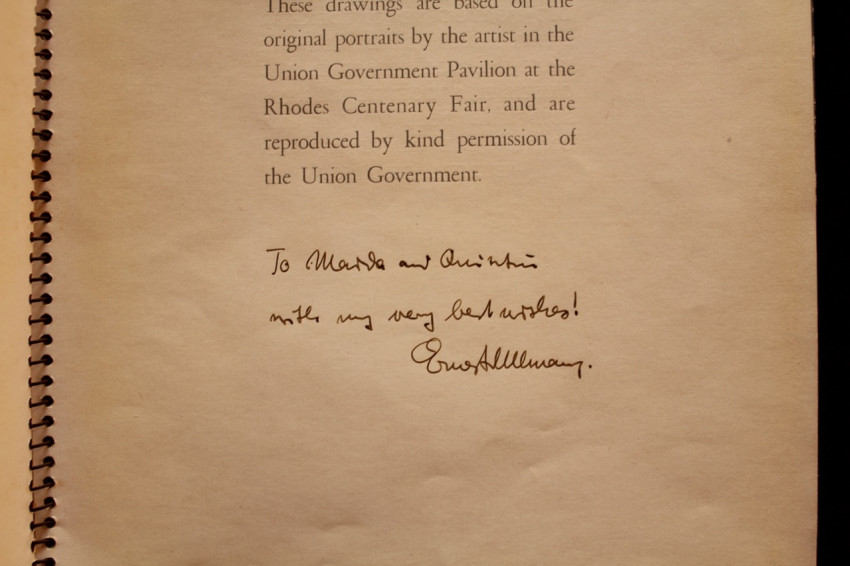 These drawings are based on the
original portraits by the artist in the
Union Government Pavilion at the
Rhodes Centenary Fair, and are
reproduced by kind permission of
the Union Government.
To Maida and Quintin
with my very best wishes!
Ernest Ullmann.